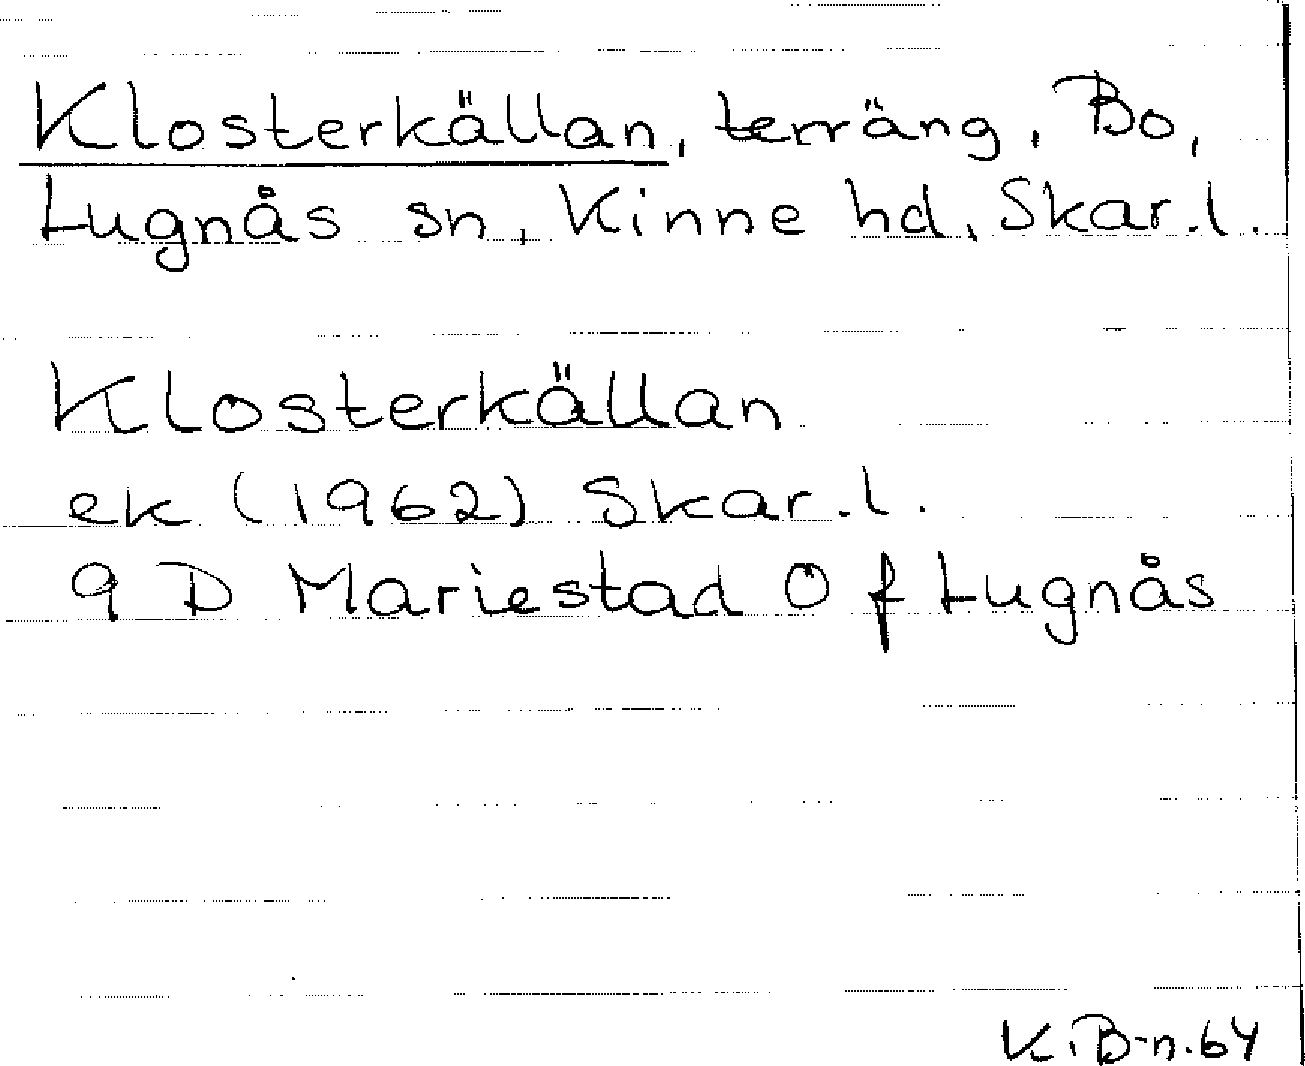 Klosterkällan, terräng, Bo,
Lugnås sn, Kinne hd, Skar.l.
Klosterkällan
ek (1962) Skar.l.
9 D Mariestad 0 f Lugnås
K.B-n.64